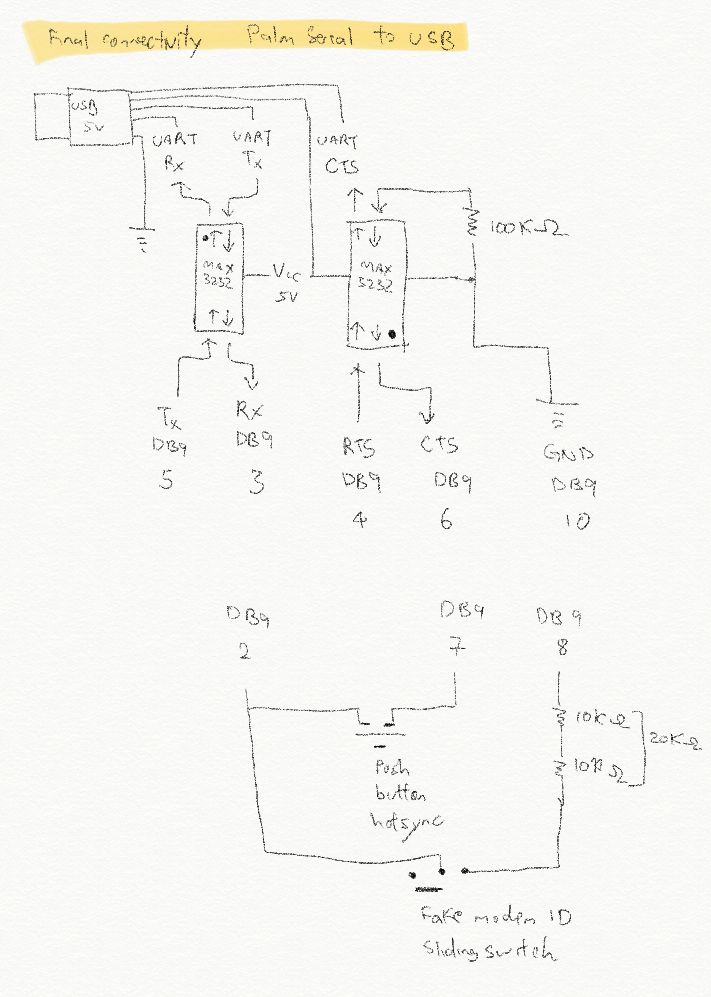 Final connectivity Palm Serial to USB
USB
5V
UART
Rx
UART
Tx
UART
CTS
100KΩ
MAX
3232
Vcc
5V
MAX
3232
Tx
DB9
5
RX
DB9
3
RTS
DB9
4
CTS
DB9
6
GND
DB9
10
DB9
2
DB9
7
DB9
8
10KΩ
10KΩ
20KΩ
Push
button
hotsync
Fake modem ID
sliding switch